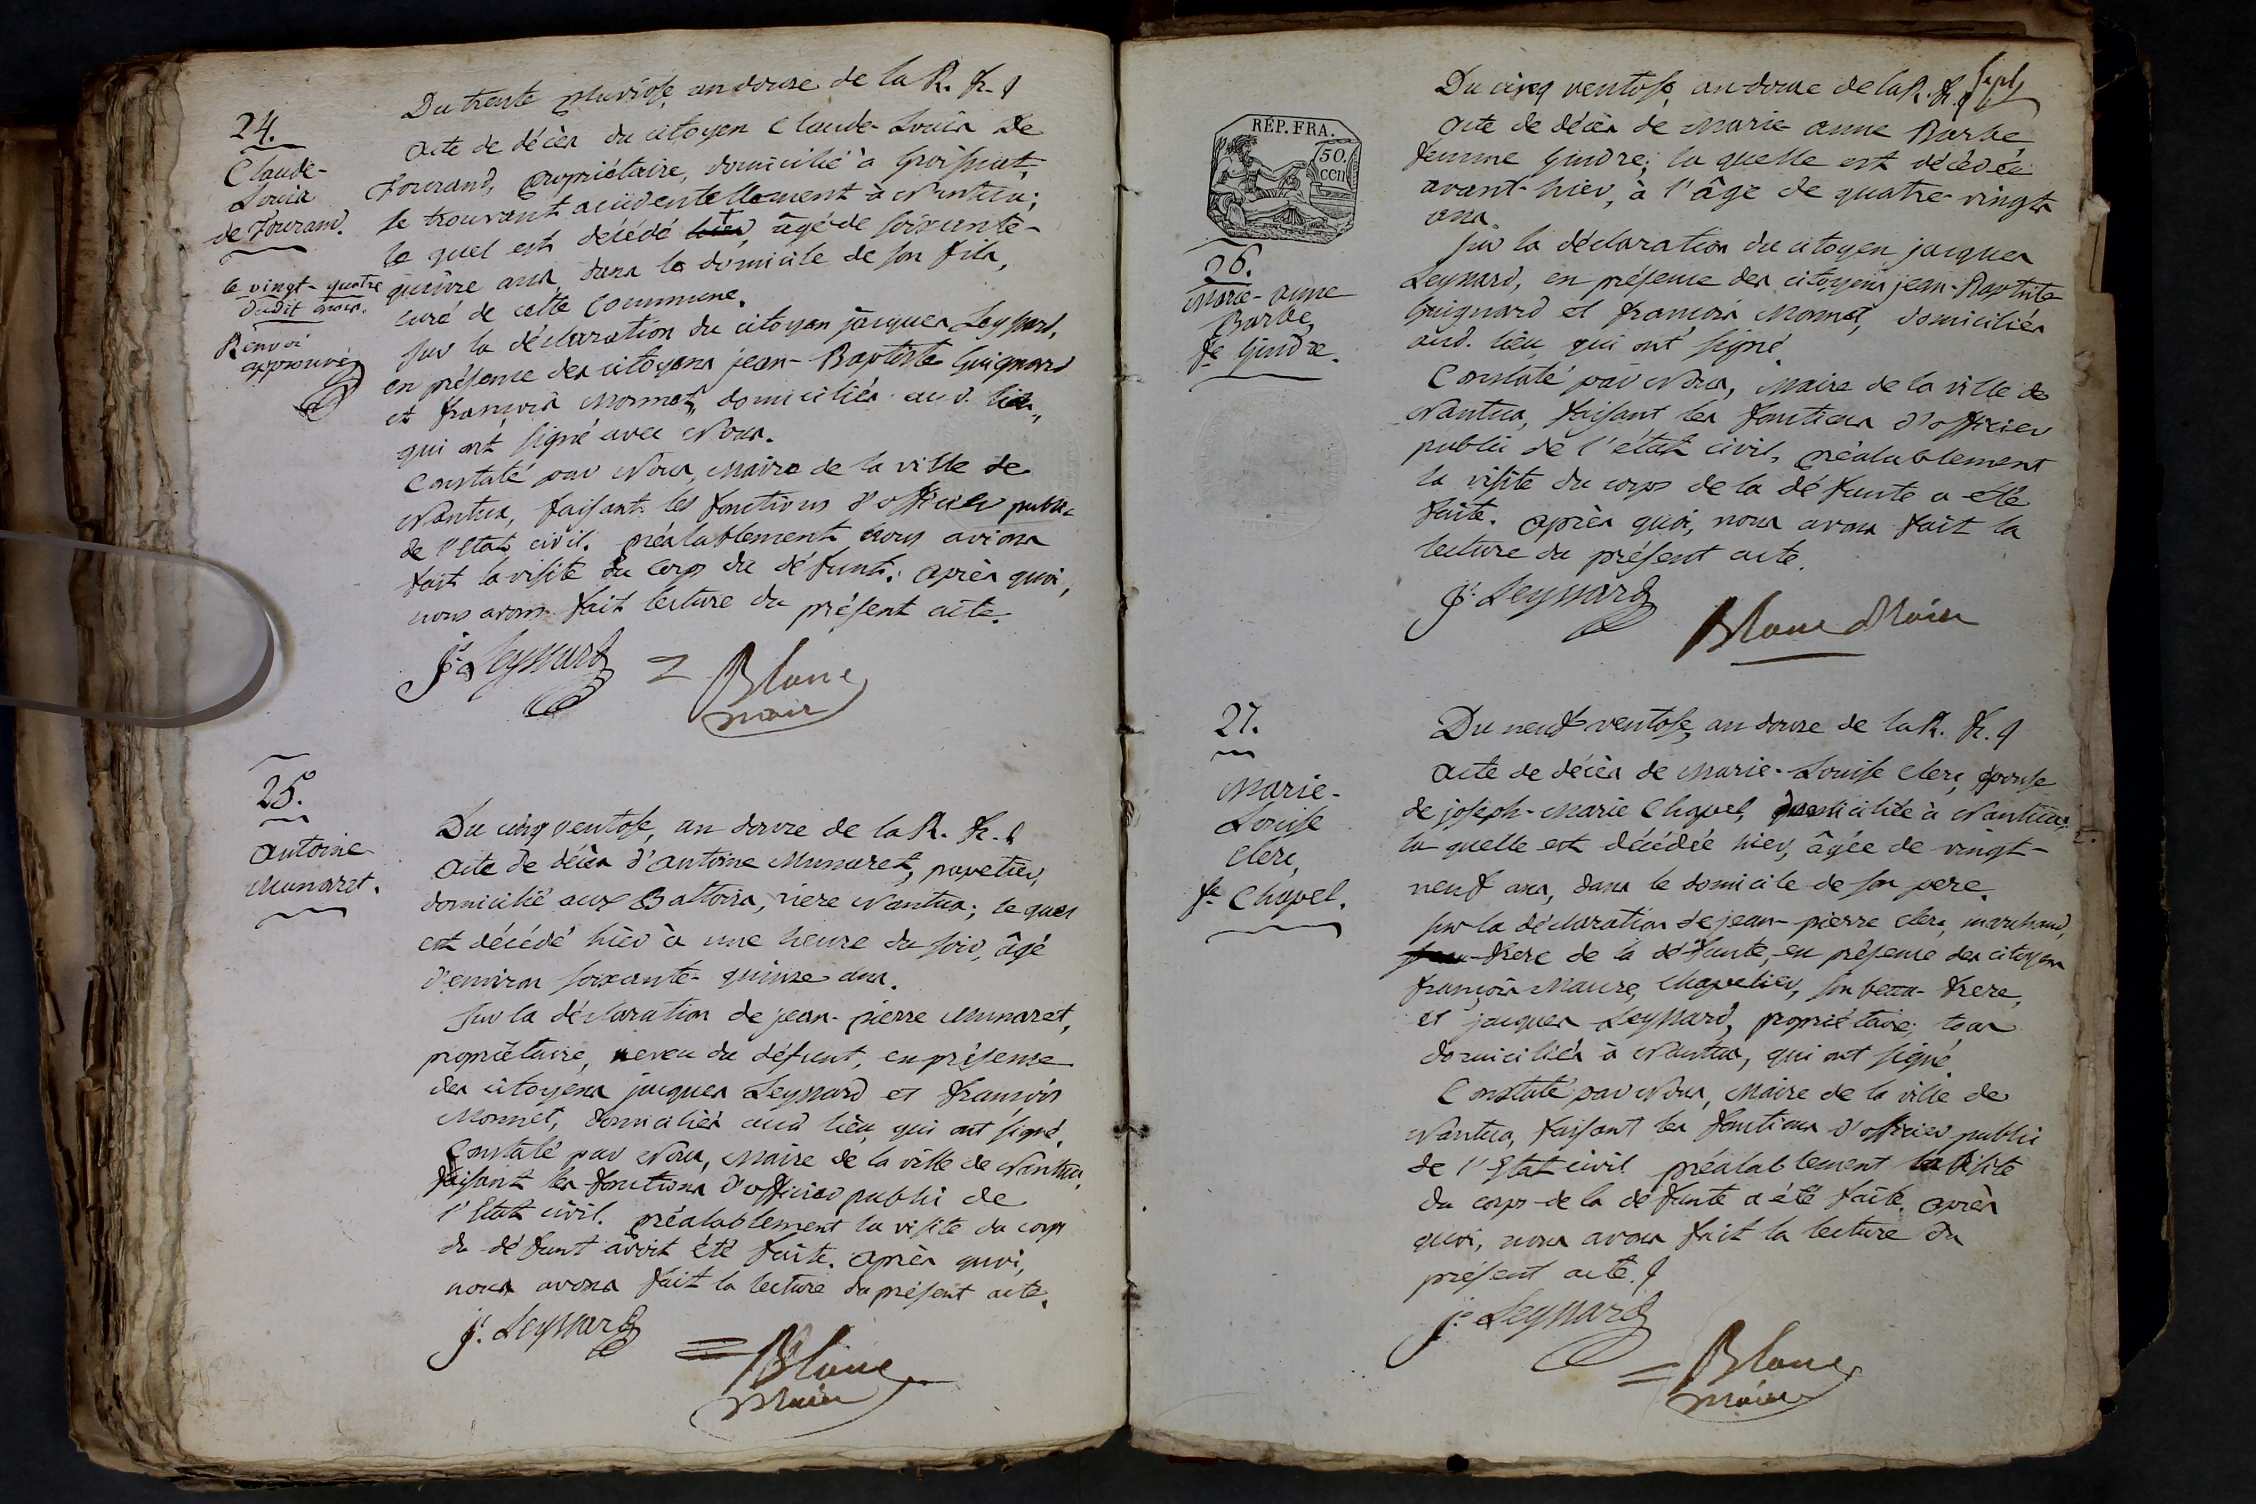 24.
Claude-
Louis
de Fourand.
le vingt-quatre
dudit mois.
Renvoi
approuvé
Du trente pluviose, an douze de la R. fr.
Acte de décès du citoyen Claude-Louis De
Fourand, propriétaire, domicilié à Groissiat,
se trouvant accidentellement à Nantua;
le quel est décédé hier, âgé de soixante-
quinze ans, dans le domicile de son fils,
curé de cette Commune.
Sur la déclaration du citoyen jacques Leyssard,
en présence des citoyens jean-Baptiste Guignard
et françois Monnet, domiciliés aud. lieu,
qui ont signé avec Nous.
Constaté par Nous, Maire de la ville de
Nantua, faisant les fonctions d'officier public
de l'Etat civil. préalablement nous avions
fait la visite du corps du défunt. Après quoi,
nous avons fait lecture du présent acte.
j.s Leyssard
Blanc
maire
25.
Antoine
Munaret.
Du cinq ventose, an douze de la R. fr.
Acte de décès d'Antoine Munaret, papetier,
domicilié aux Battoirs, riere Nantua; le quel
est décédé hier à une heure du soir, âgé
d'environ soixante-quinze ans.
Sur la déclaration de jean-pierre Munaret,
propriétaire, neveu du défunt, en présence
des citoyens jacques Leyssard et françois
Monnet, domiciliés aud lieu, qui ont signé.
Constaté par Nous, Maire de la ville de Nantua,
faisant les fonctions d'officier public de
l'Etat civil. préalablement la visite du corps
du défunt avoit été faite. Après quoi,
nous avons fait la lecture du présent acte.
j.s Leyssard
Blanc
Maire
sept
RÉP. FRA.
50.
CEN
26.
Marie-anne
Barbe,
fe. Gindre.
Du cinq ventose, an douze de la R. fr.
Acte de décès de Marie-anne Barbe,
femme Gindre; la quelle est décédée
avant-hier, à l'âge de quatre-vingts
ans.
Sur la déclaration du citoyen jacques
Leyssard, en présence des citoyens jean-Baptiste
Guignard et françois Monnet, domiciliés
aud. lieu, qui ont signé.
Constaté par Nous, Maire de la ville de
Nantua, faisant les fonctions d'officier
public de l'état civil, préalablement
la visite du corps de la défunte a été
faite. Après quoi, nous avons fait la
lecture du présent acte.
j.s Leyssard
Blanc Maire
27.
Marie-
Louise
Clerc,
fe. Chapel.
Du neuf ventose, an douze de la R. fr.
Acte de décès de Marie-Louise Clerc, épouse
de joseph-Marie Chapel, domiciliée à Nantua;
la quelle est décédée hier, âgée de vingt-
neuf ans, dans le domicile de son pere.
Sur la déclaration de jean-pierre Clerc, marchand,
frere de la défunte, en présence des citoyens
françois Maure, Chapelier, son beau-frere,
et jacques Leyssard, propriétaire; tous
domiciliés à Nantua, qui ont signé.
Constaté par Nous, Maire de la ville de
Nantua, faisant les fonctions d'officier public
de l'Etat civil préalablement la visite
du corps de la défunte a été faite. Après
quoi, nous avons fait la lecture du
présent acte.
j.s Leyssard
Blanc
maire